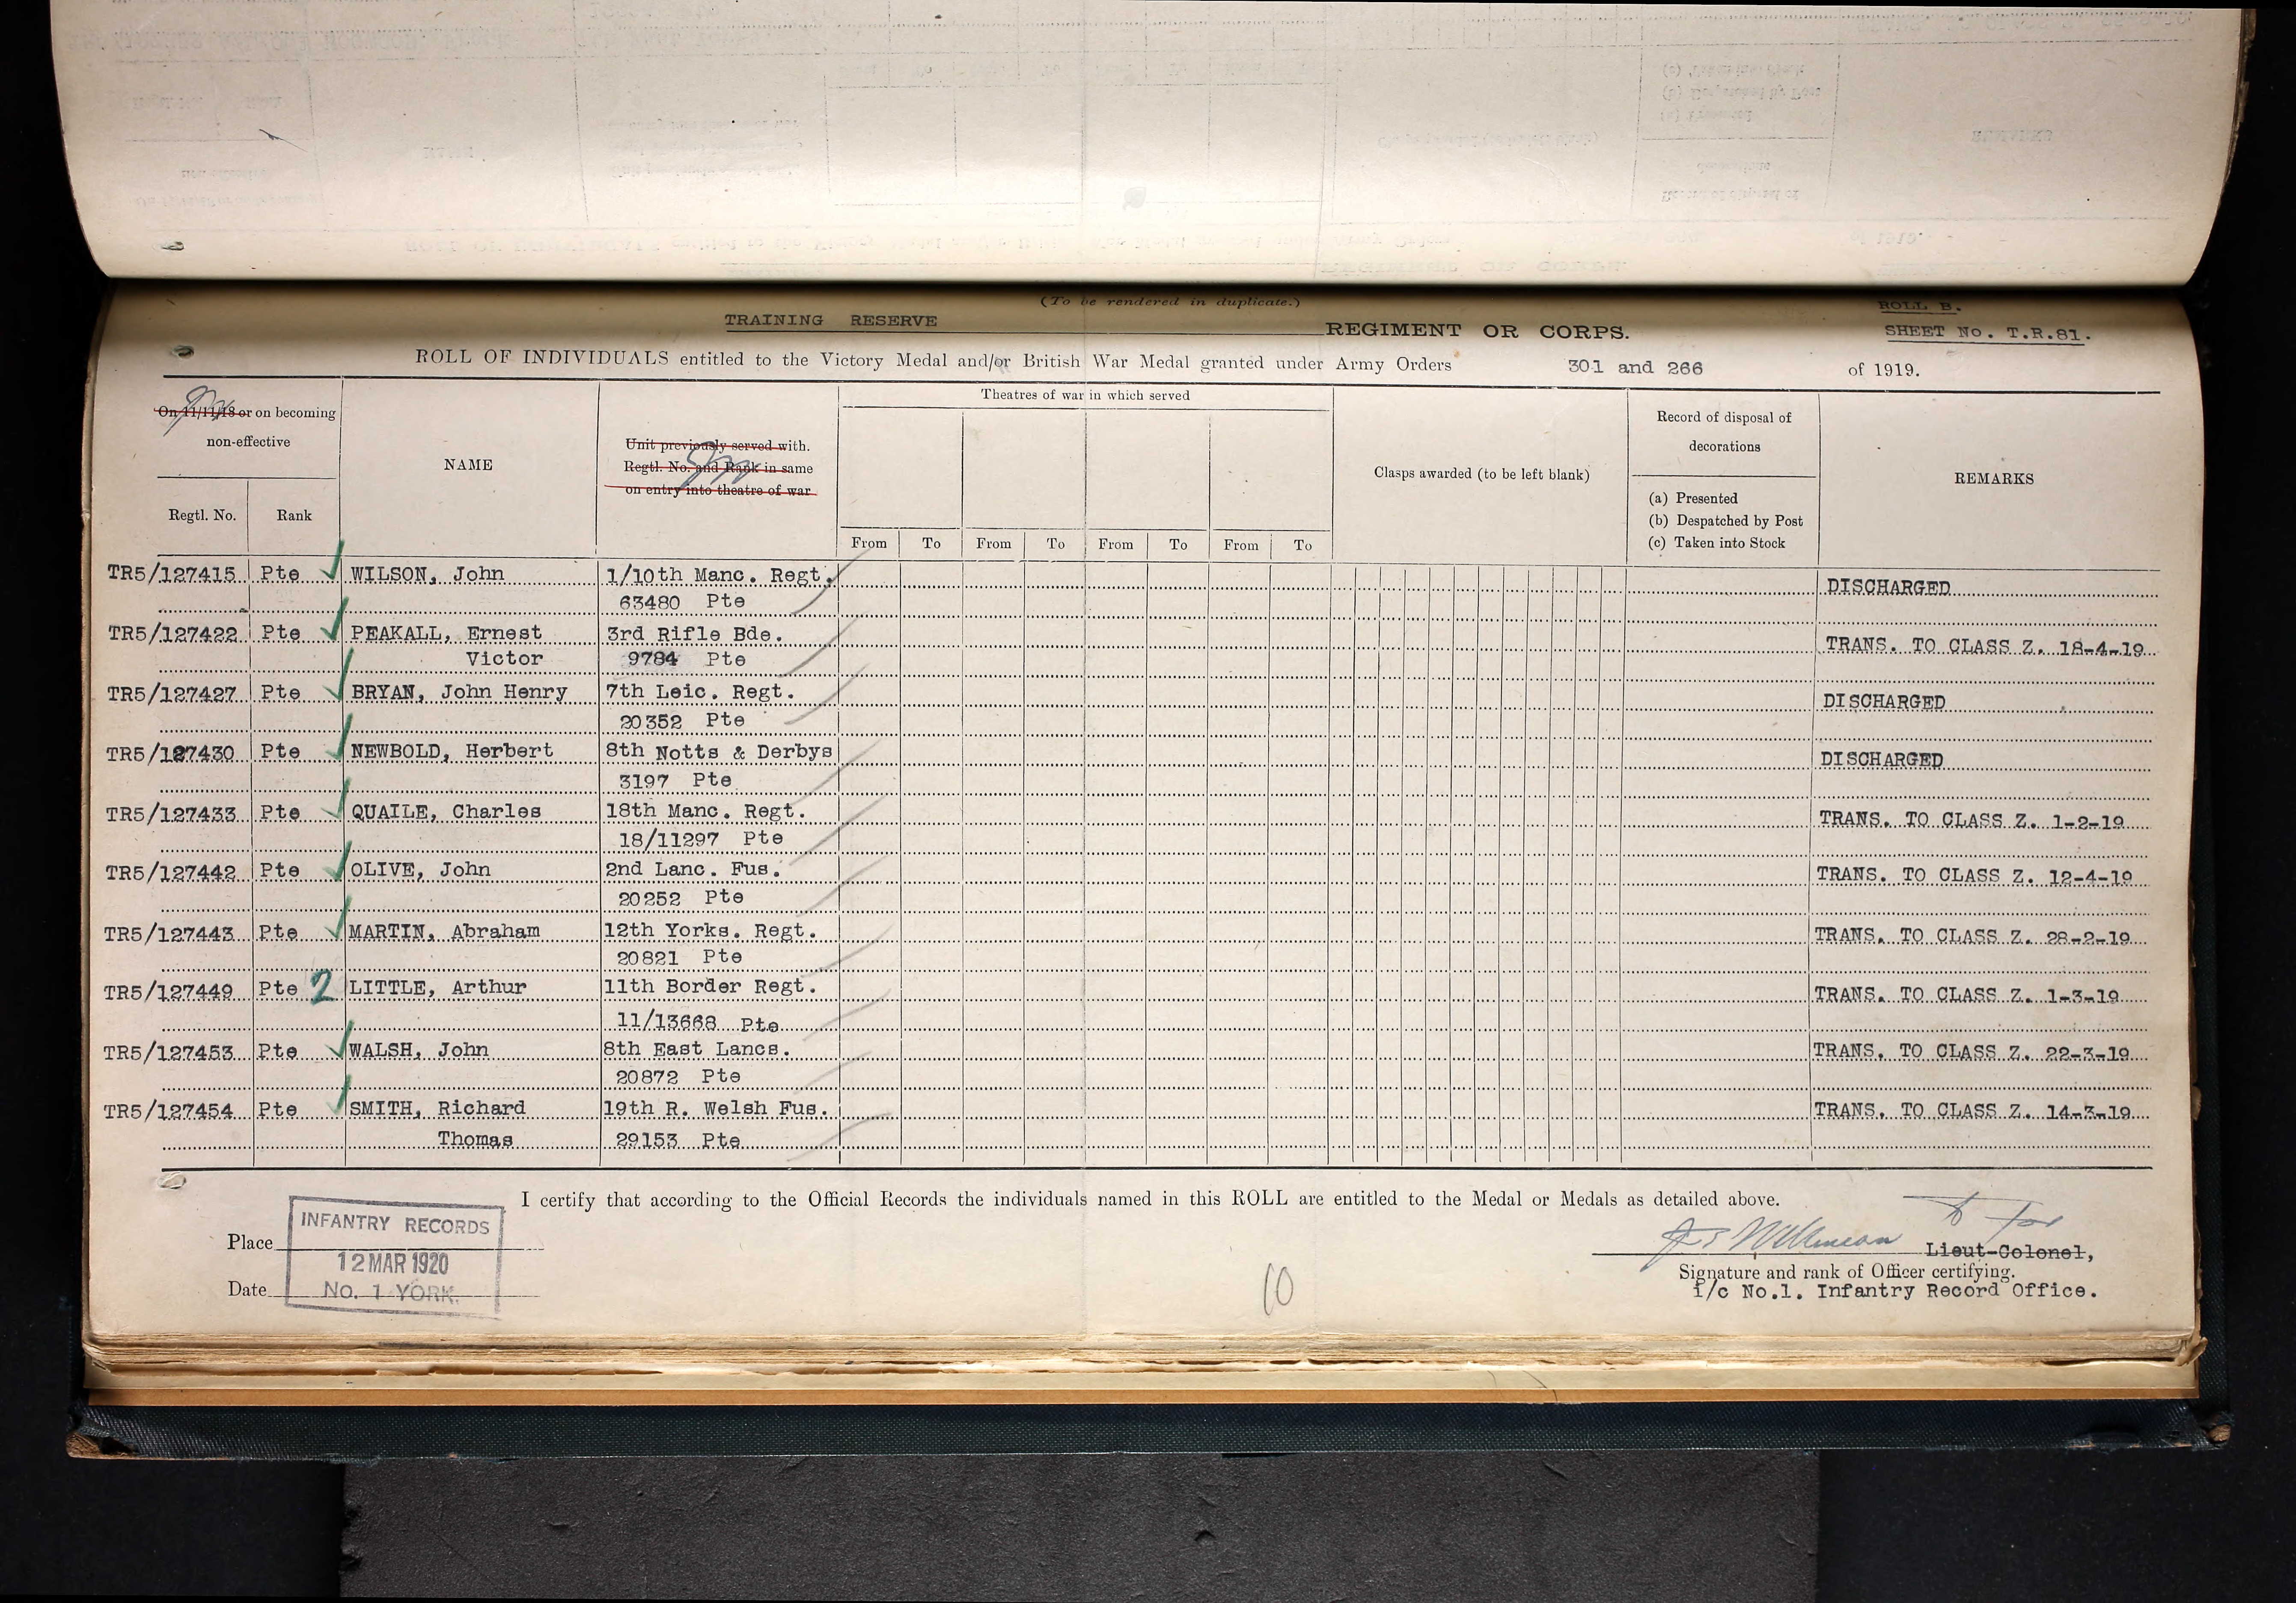 (To be rendered in duplicate.)
ROLL B.
TRAINING RESERVE REGIMENT OR CORPS.
SHEET No. T.R.81.
ROLL OF INDIVIDUALS entitled to the Victory Medal and/or British War Medal granted under Army Orders 301 and 266 of 1919.
On 11/11/18 or on becoming
non-effective
Regtl. No. Rank
NAME
Unit previously served with.
Regtl. No. and Rank in same
on entry into theatre of war
Theatres of war in which served
From To From To From To From To
Clasps awarded (to be left blank)
Record of disposal of
decorations
(a) Presented
(b) Despatched by Post
(c) Taken into Stock
REMARKS
TR5/127415 Pte WILSON, John 1/10th Manc. Regt. DISCHARGED
63480 Pte
TR5/127422 Pte PEAKALL, Ernest 3rd Rifle Bde. TRANS. TO CLASS Z. 18-4-19
Victor 9784 Pte
TR5/127427 Pte BRYAN, John Henry 7th Leic. Regt. DISCHARGED
20352 Pte
TR5/127430 Pte NEWBOLD, Herbert 8th Notts & Derbys DISCHARGED
3197 Pte
TR5/127433 Pte QUAILE, Charles 18th Manc. Regt. TRANS. TO CLASS Z. 1-2-19
18/11297 Pte
TR5/127442 Pte OLIVE, John 2nd Lanc. Fus. TRANS. TO CLASS Z. 12-4-19
20252 Pte
TR5/127443 Pte MARTIN, Abraham 12th Yorks. Regt. TRANS. TO CLASS Z. 28-2-19
20821 Pte
TR5/127449 Pte 2 LITTLE, Arthur 11th Border Regt. TRANS. TO CLASS Z. 1-3-19
11/13668 Pte
TR5/127453 Pte WALSH, John 8th East Lancs. TRANS. TO CLASS Z. 22-3-19
20872 Pte
TR5/127454 Pte SMITH, Richard 19th R. Welsh Fus. TRANS. TO CLASS Z. 14-3-19
Thomas 29153 Pte
I certify that according to the Official Records the individuals named in this ROLL are entitled to the Medal or Medals as detailed above.
Place
Date
INFANTRY RECORDS
12 MAR 1920
No. 1 YORK.
10
Lieut-Colonel,
Signature and rank of Officer certifying.
i/c No.1. Infantry Record Office.